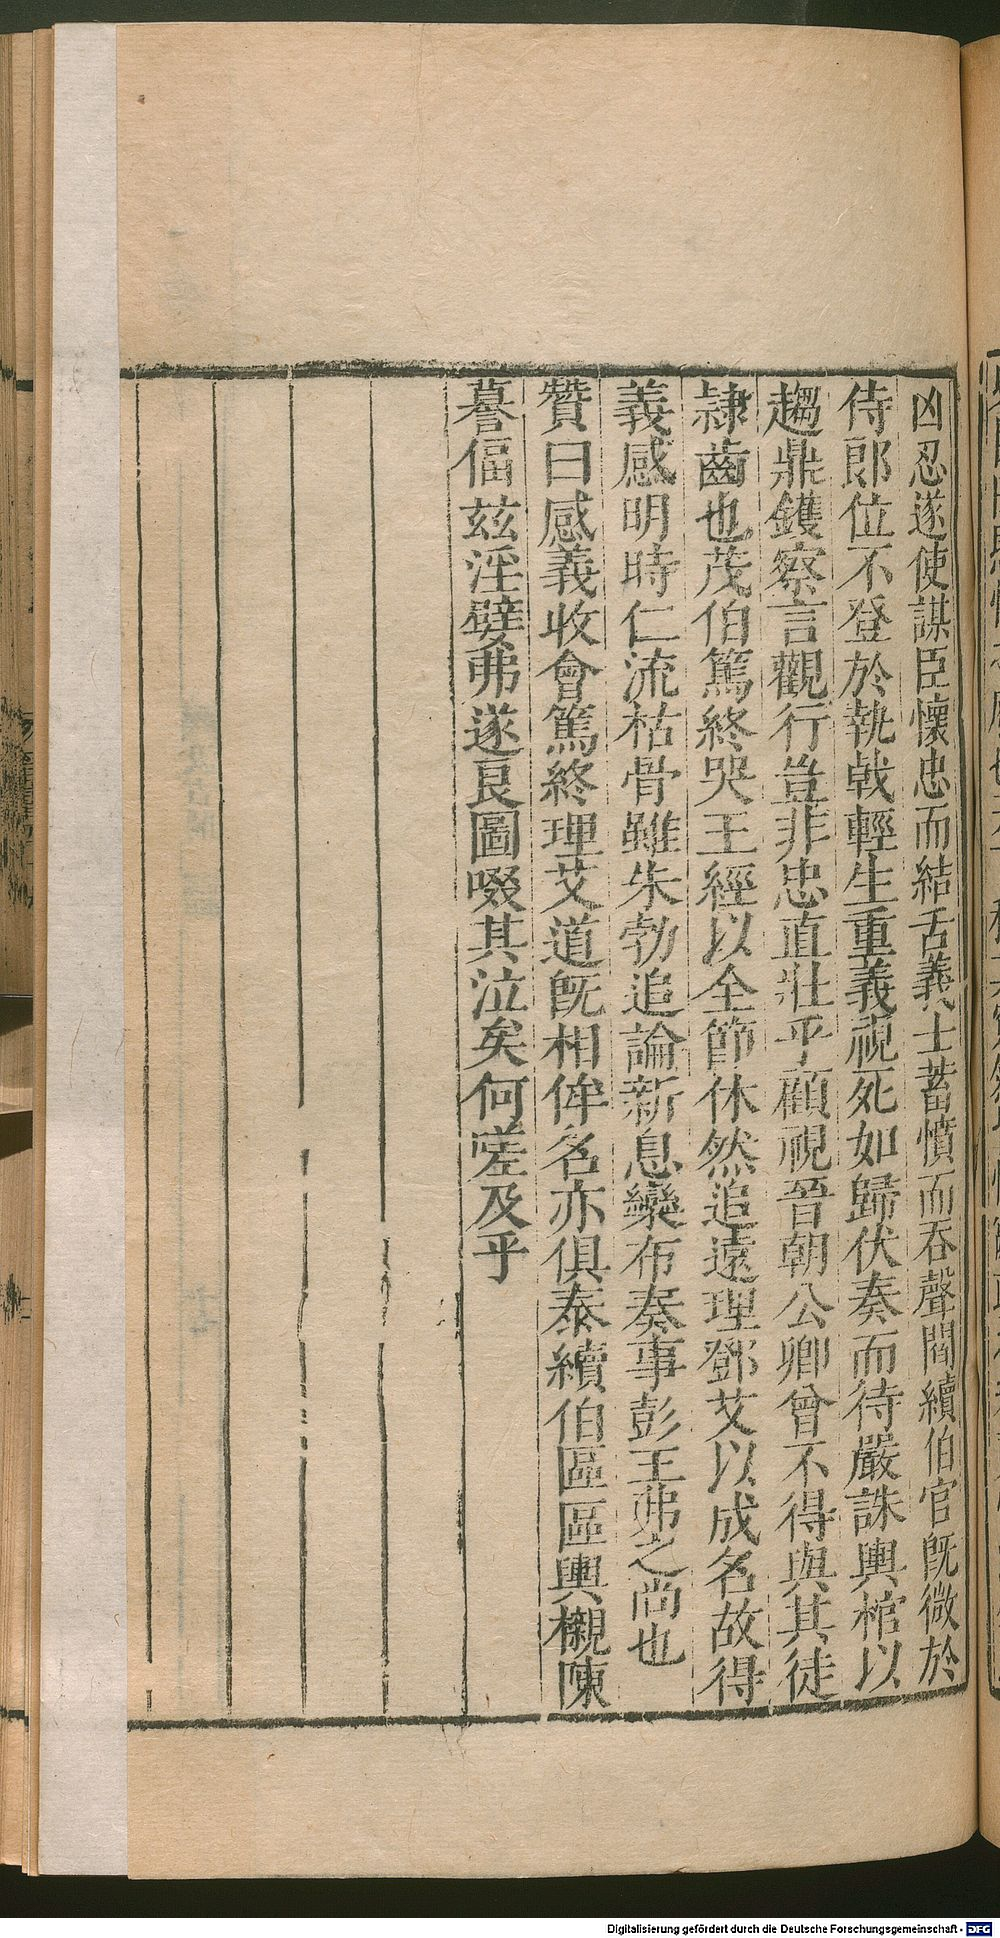 凶忍遂使謀臣懷忠而結舌義士蓄憤而吞聲閻續伯官既微於
侍郎位不登於執戟輕生重義視死如歸伏奏而待嚴誅輿棺以
趨鼎鑊察言觀行豈非忠直壯乎顧視晉朝公卿曾不得與其徒
隷齒也茂伯篤終哭王經以全節休然追遠理鄧艾以成名故得
義感明時仁流枯骨雖朱勃追論新息欒布奏事彭王弗之尚也
贊曰感義收會篤終理艾道既相侔名亦俱泰續伯區區輿櫬陳
謩偪茲淫嬖弗遂良圖啜其泣矣何嗟及乎
Digitalisierung gefördert durch die Deutsche Forschungsgemeinschaft - DFG